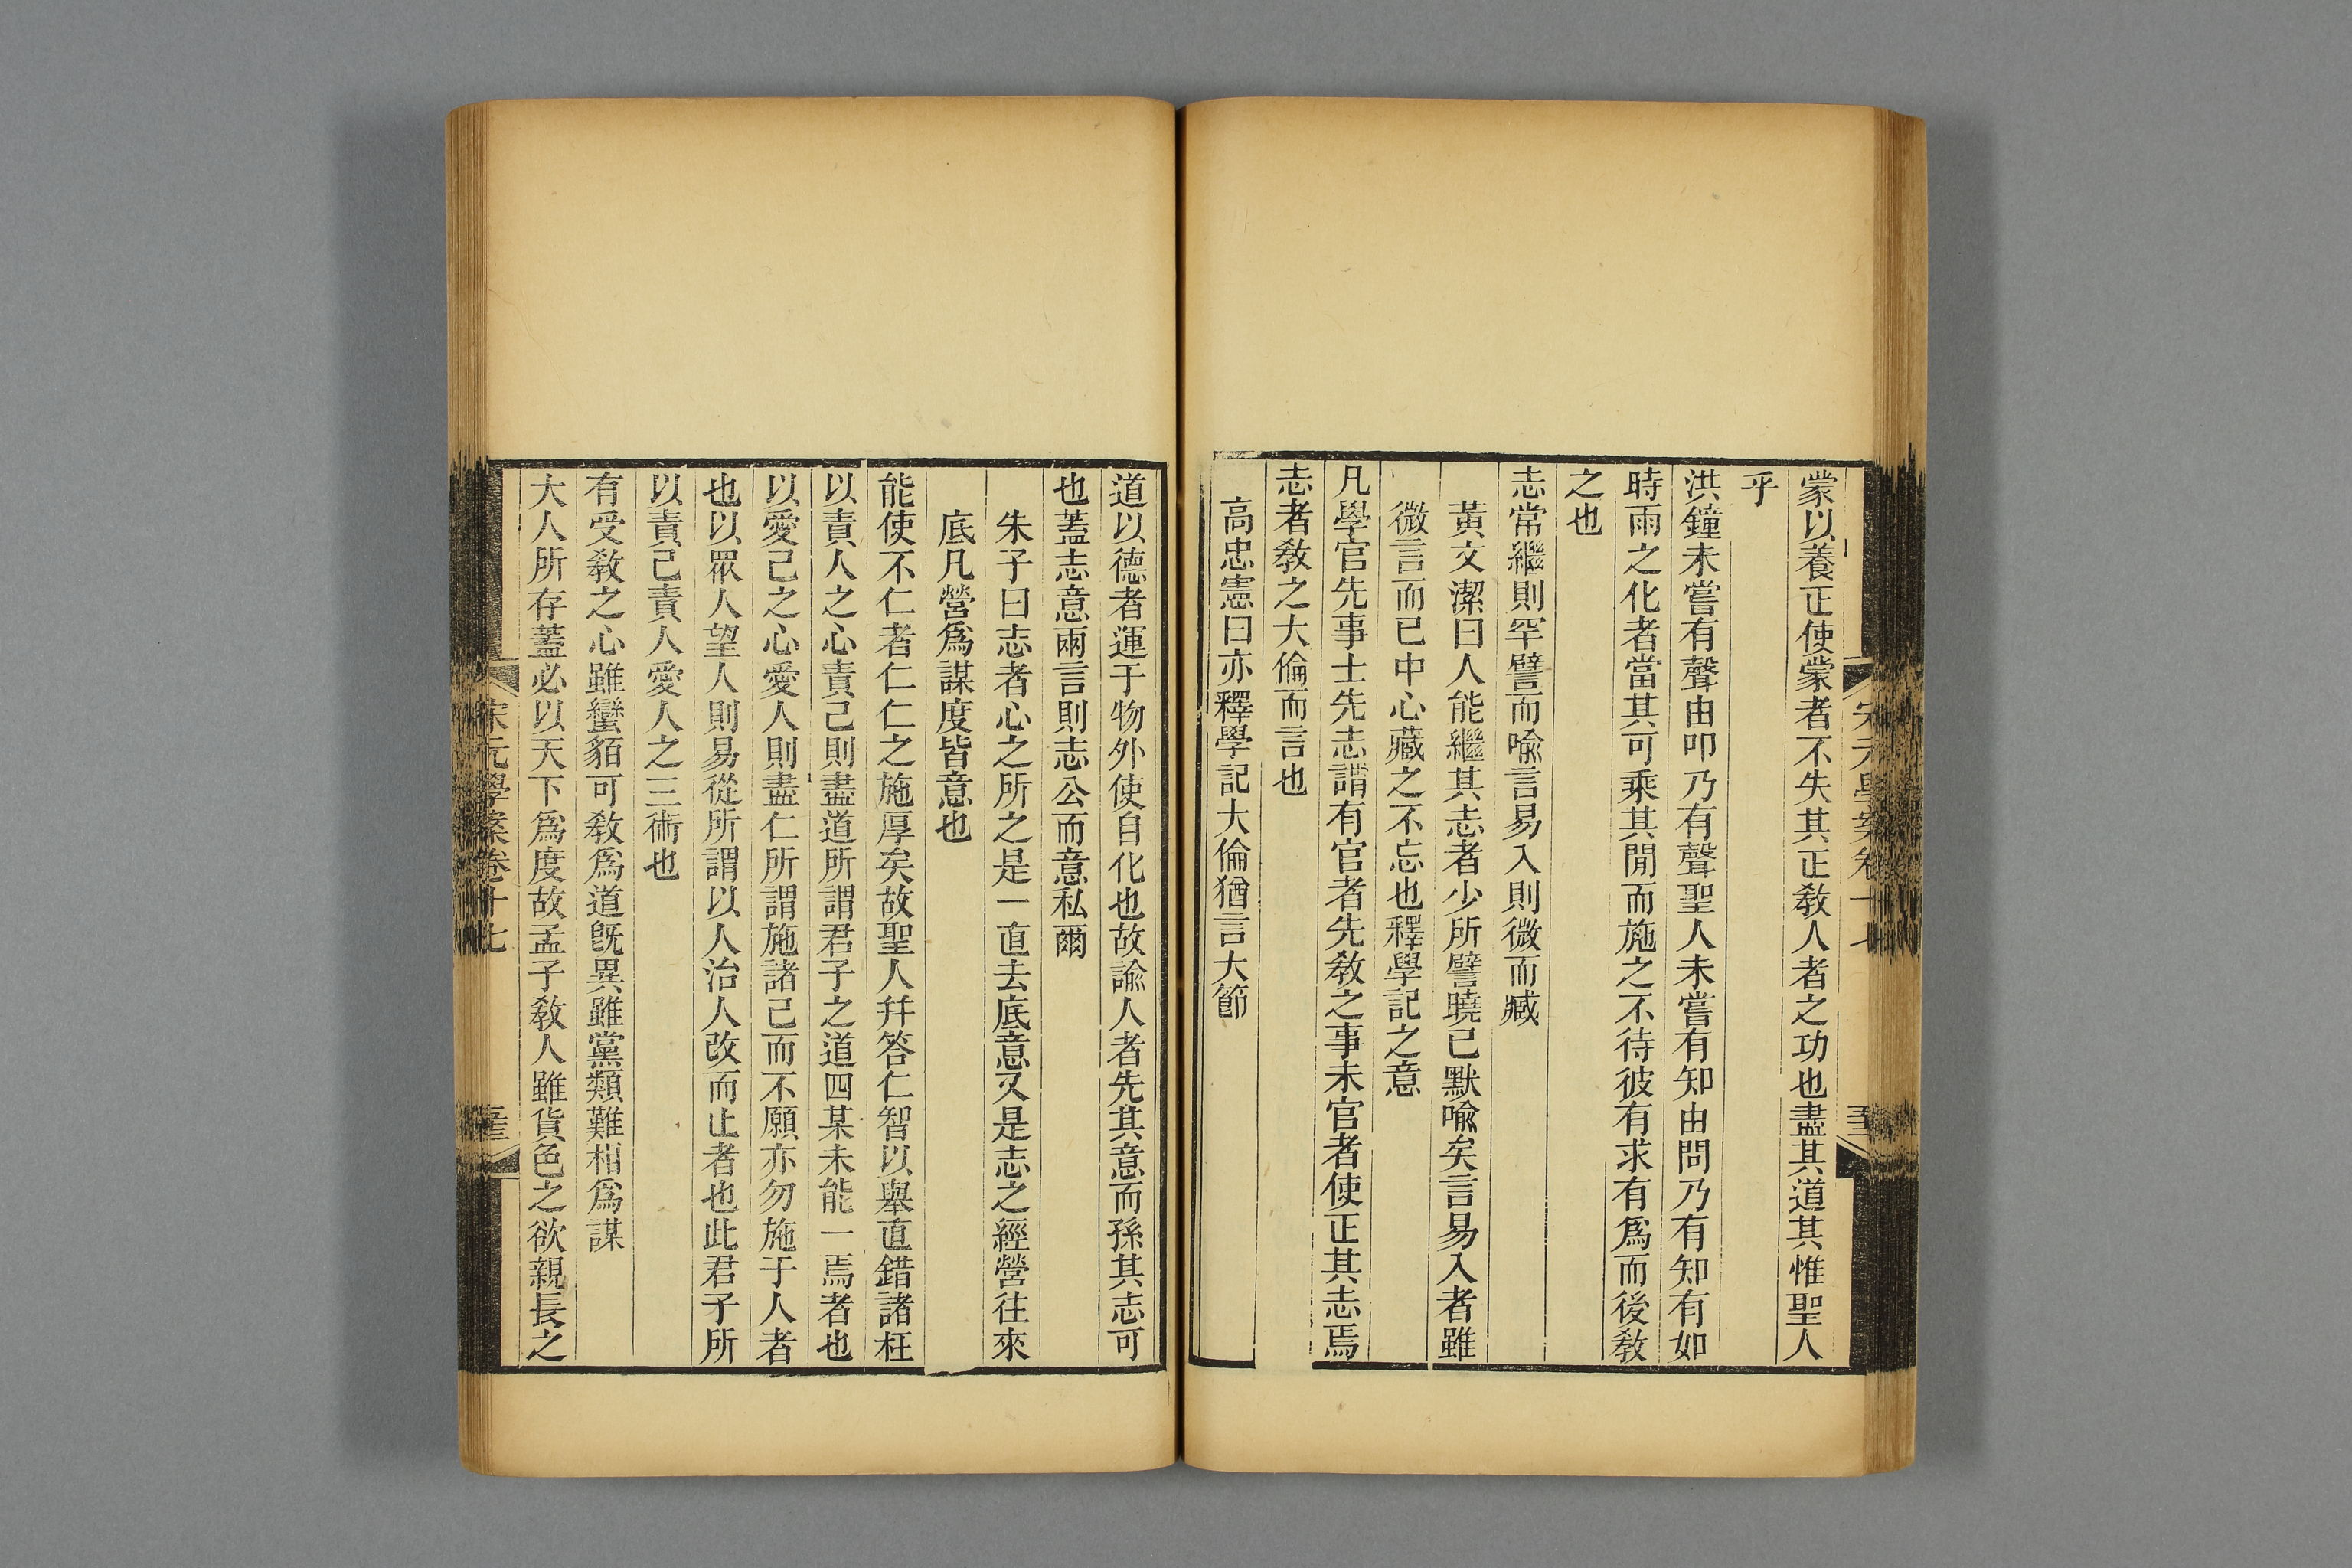 蒙以養正使蒙者不失其正敎人者之功也盡其道其惟聖人
乎
洪鐘未嘗有聲由叩乃有聲聖人未嘗有知由問乃有知有如
時雨之化者當其可乘其閒而施之不待彼有求有爲而後敎
之也
志常繼則罕譬而喩言易入則微而臧
黃文潔曰人能繼其志者少所譬曉已默喩矣言易入者雖
微言而已中心藏之不忘也釋學記之意
凡學官先事士先志謂有官者先敎之事未官者使正其志焉
志者敎之大倫而言也
高忠憲曰亦釋學記大倫猶言大節
道以德者運于物外使自化也故諭人者先其意而孫其志可
也蓋志意兩言則志公而意私爾
朱子曰志者心之所之是一直去底意又是志之經營往來
底凡營爲謀度皆意也
能使不仁者仁仁之施厚矣故聖人幷答仁智以舉直錯諸枉
以責人之心責己則盡道所謂君子之道四某未能一焉者也
以愛己之心愛人則盡仁所謂施諸己而不願亦勿施于人者
也以眾人望人則易從所謂以人治人改而止者也此君子所
以責己責人愛人之三術也
有受敎之心雖蠻貊可敎爲道旣異雖黨類難相爲謀
大人所存蓋必以天下爲度故孟子敎人雖貨色之欲親長之
宋元學案卷十七